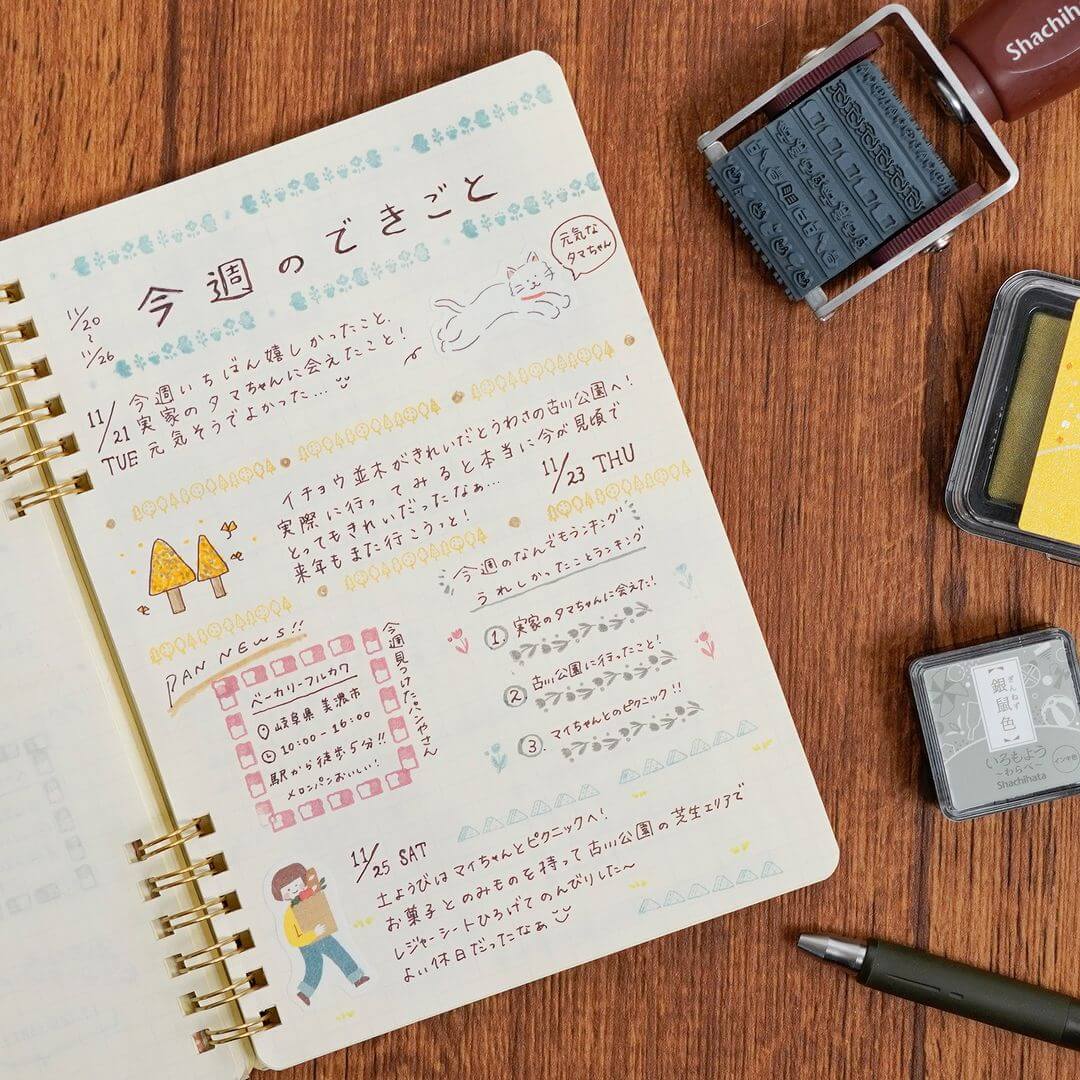 今週のできごと
11/20
～
11/26
元気な
タマちゃん
11/21
TUE
今週いちばん嬉しかったこと、
実家のタマちゃんに会えたこと!
元気そうでよかった…
イチョウ並木がきれいだとうわさの古川公園へ!
実際に行ってみると本当に今が見頃で
とってもきれいだったなぁ…
来年もまた行こうっと!
11/23 THU
PAN NEWS!!
今週見つけたパンやさん
ベーカリーフルカワ
岐阜県 美濃市
10:00-16:00
駅から徒歩5分!!
メロンパンおいしい!
今週のなんでもランキング
うれしかったことランキング
1. 実家のタマちゃんに会えた!
2. 古川公園に行ったこと!
3. マイちゃんとのピクニック!!
11/25 SAT
土ようびはマイちゃんとピクニックへ!
お菓子とのみものを持って古川公園の芝生エリアで
レジャーシートひろげてのんびりした〜
よい休日だったなぁ
Shachih
銀鼠色
ぎんねず
いろもよう
～わらべ～
Shachihata
インキ色